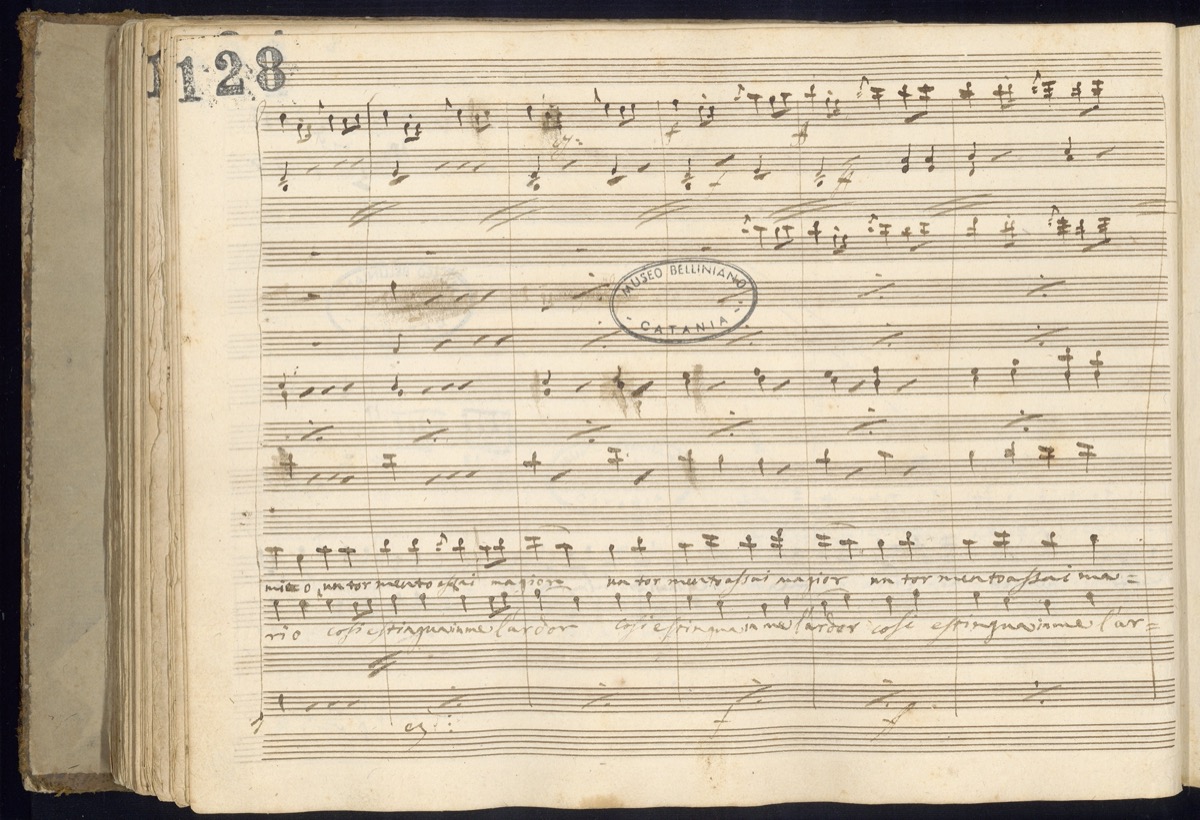 1128
MUSEO BELLINIANO
- CATANIA -
f ff
f ff
mio o un tormento assai magior un tormento assai magior un tormento assai ma=
rio cosi estingua in me l'ardor cosi estingua in me l'ardor cosi estingua in me l'ar=
f f